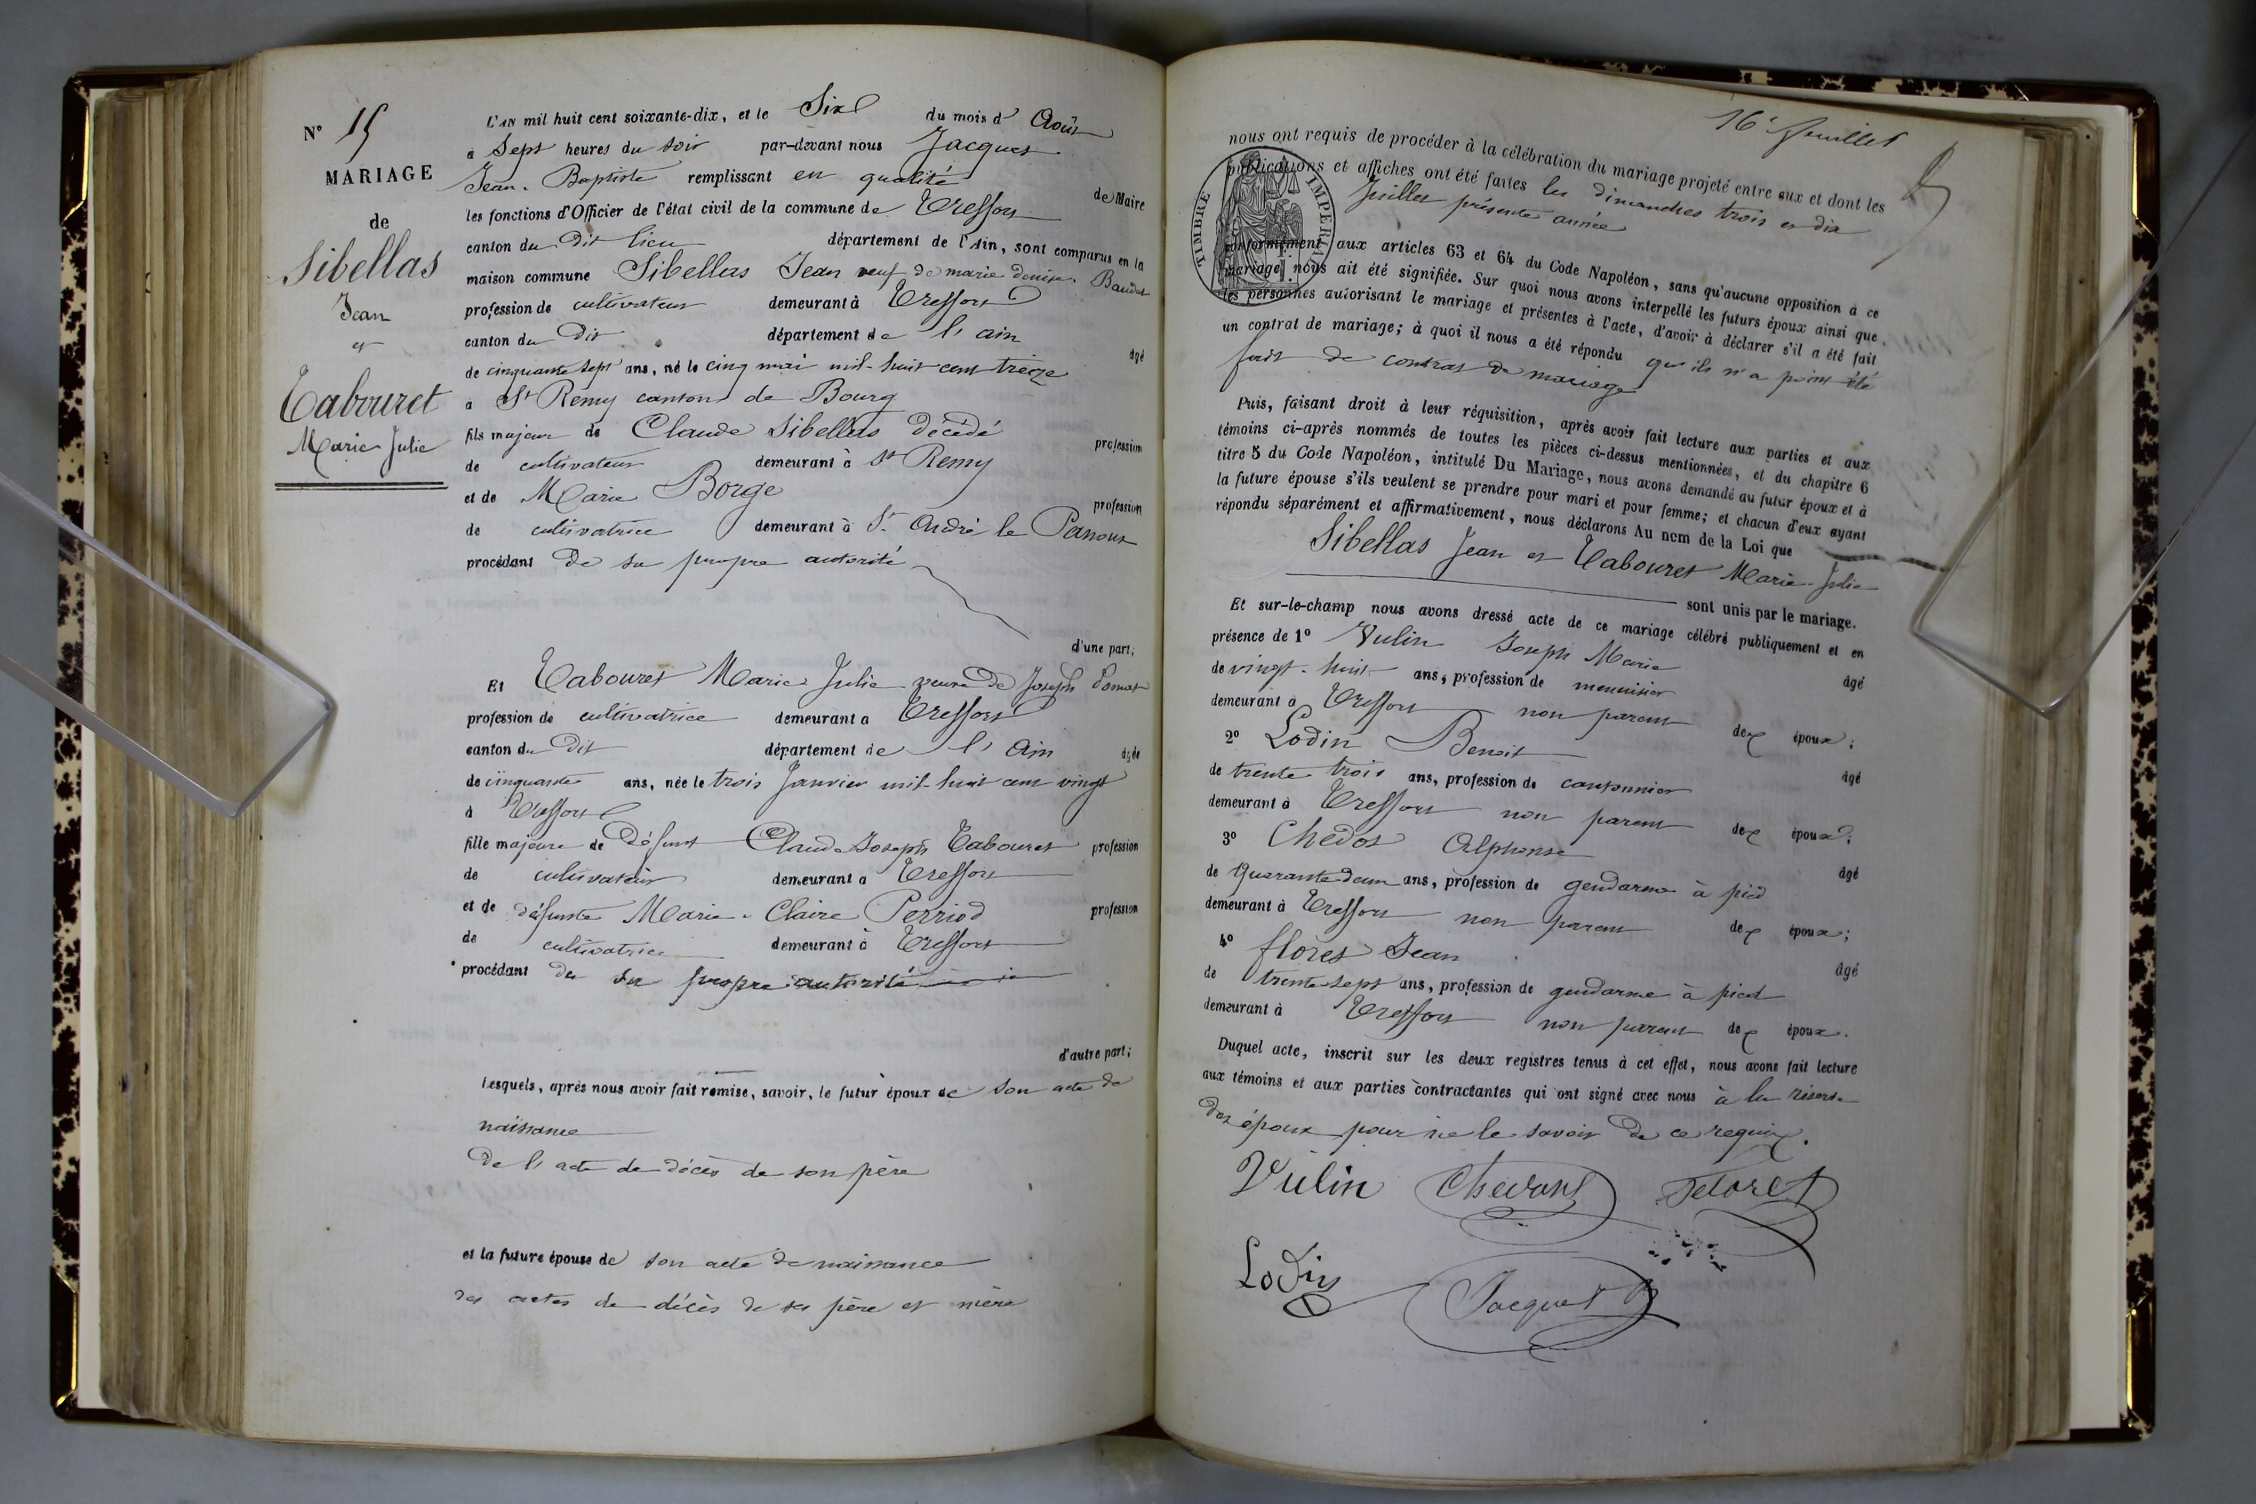 N° 15
MARIAGE
de
Sibellas
Jean
et
Tabouret
Marie Julie
L'AN mil huit cent soixante-dix, et le Six du mois d' Août
à Sept heures du soir par-devant nous Jacquet
Jean-Baptiste remplissant en qualité de Maire
les fonctions d'Officier de l'état civil de la commune de Treffort
canton du Dit lieu département de l'Ain, sont comparus en la
maison commune Sibellas Jean veuf de marie denise Baudet
profession de cultivateur demeurant à Treffort
canton du Dit département de l'ain âgé
de cinquante sept ans, né le cinq mai mil-huit cent treize
à St Remy canton de Bourg
fils majeur de Claude Sibellas Décédé profession
de cultivateur demeurant à St Remy
et de Marie Borge profession
de cultivatrice demeurant à St André le Panoux
procédant de sa propre autorité
d'une part;
Et Tabouret Marie Julie veuve de Joseph
profession de cultivatrice demeurant à Treffort
canton du Dit département de l'Ain âgée
de cinquante ans, née le trois Janvier mil-huit cent vingt
à Treffort
fille majeure de Défunt Claude Joseph Tabouret profession
de cultivateur demeurant à Treffort
et de défunte Marie-Claire Perriod profession
de cultivatrice demeurant à Treffort
procédant de sa propre autorité
d'autre part;
Lesquels, après nous avoir fait remise, savoir, le futur époux de son acte de
naissance
De l'acte de décès de son père
et la future épouse de son acte de naissance
des actes de décès de ses père et mère
16e feuillet
nous ont requis de procéder à la célébration du mariage projeté entre eux et dont les
publications et affiches ont été faites les dimanches trois et dix
Juillet présente année
conformément aux articles 63 et 64 du Code Napoléon, sans qu'aucune opposition à ce
mariage nous ait été signifiée. Sur quoi nous avons interpellé les futurs époux ainsi que
les personnes autorisant le mariage et présentes à l'acte, d'avoir à déclarer s'il a été fait
un contrat de mariage; à quoi il nous a été répondu qu'ils n'a point été
fait de contrat de mariage
TIMBRE IMPERIAL
Puis, faisant droit à leur réquisition, après avoir fait lecture aux parties et aux
témoins ci-après nommés de toutes les pièces ci-dessus mentionnées, et du chapitre 6
titre 5 du Code Napoléon, intitulé Du Mariage, nous avons demandé au futur époux et à
la future épouse s'ils veulent se prendre pour mari et pour femme; et chacun d'eux ayant
répondu séparément et affirmativement, nous déclarons Au nom de la Loi que
Sibellas Jean et Tabouret Marie-Julie
sont unis par le mariage.
Et sur-le-champ nous avons dressé acte de ce mariage célébré publiquement et en
présence de 1° Vulin Joseph Marie âgé
de vingt-huit ans, profession de menuisier
demeurant à Treffort non parent des époux;
2° Lodin Benoit âgé
de trente trois ans, profession de cantonnier
demeurant à Treffort non parent des époux;
3° Chedos Alphonse âgé
de Quarante deux ans, profession de gendarme à pied
demeurant à Treffort non parent des époux;
4° flores Jean âgé
de trente sept ans, profession de gendarme à pied
demeurant à Treffort non parent des époux.
Duquel acte, inscrit sur les deux registres tenus à cet effet, nous avons fait lecture
aux témoins et aux parties contractantes qui ont signé avec nous à la réserve
des époux pour ne le savoir de ce requis.
Vulin
Lodin
Jacquet